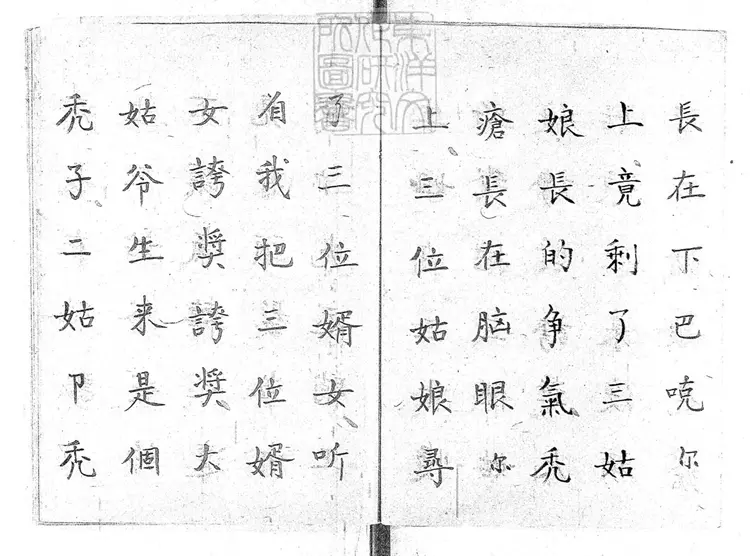 長在下巴尔
上竟剩了三姑
娘長的争氣秃
瘡長在脑眼尔
上三位姑娘尋
了三位婿女听
有我把三位婿
女誇奨誇奨大
姑爷生来是個
秃子二姑卩秃